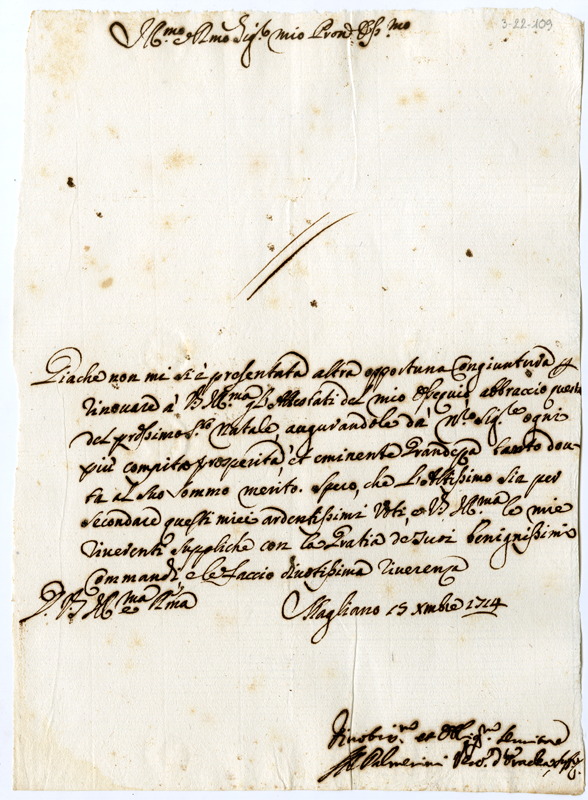 3-22-109
Ill.mo e R.mo Sig.r mio Pron. Oss.mo
Giache non mi si è presentata altra opportuna Congiuntura p
rinovare à V.S. Ill.ma gl'Attestati del mio Ossequio abbraccio questa
del prossimo S.to Natale, augurandole dà N.ro Sig.re ogni
più compita prosperità et eminente Grandezza tanto dou-
ta al suo sommo merito. Spero, che l'Altissimo sia per
secondare questi miei ardentissimi Voti e V.S. Ill.ma le mie
riverenti suppliche con la Gratia de suoi benignissimi
Commandi, e le faccio divotissima riverenza
D. V.S. Ill.ma e R.ma
Magliano 15 Xmbre 1714
Divotis.mo et Oblig.mo Servitore
Palmerini